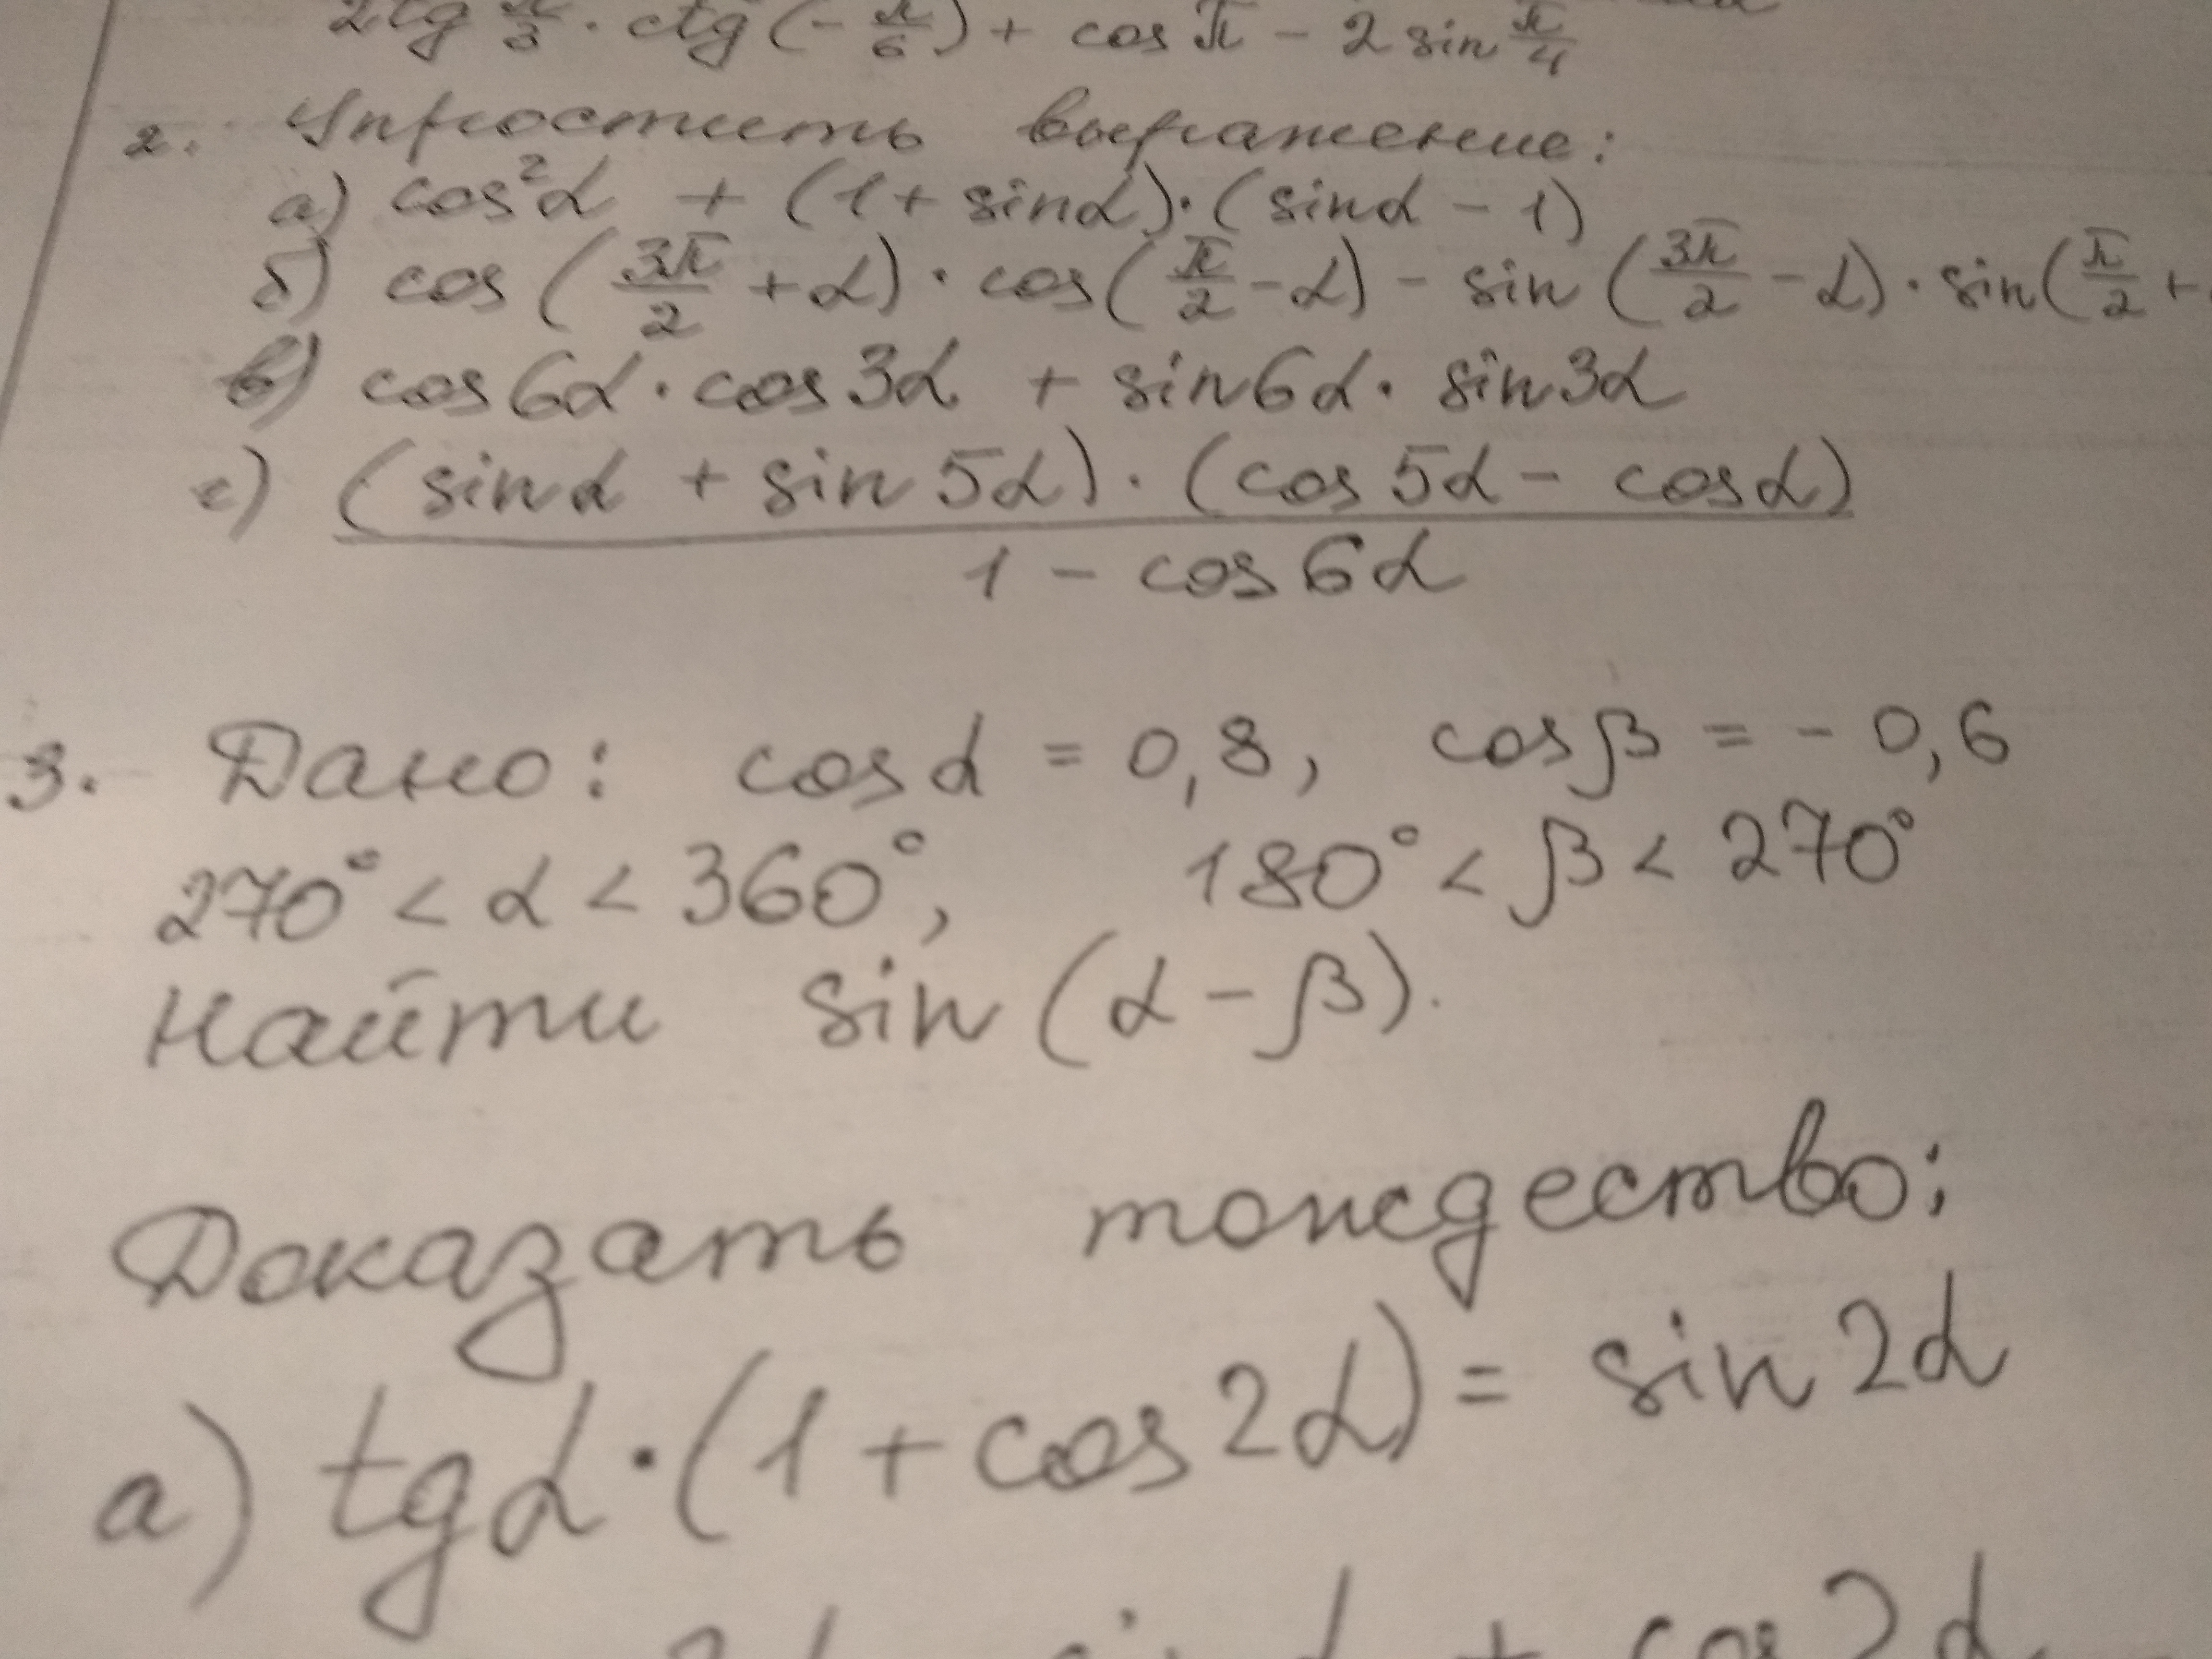 2tg π/3 · ctg(-π/6) + cos π - 2 sin π/4
2. Упростить выражение:
а) cos²α + (1 + sinα)·(sinα - 1)
б) cos(3π/2 + α) · cos(π/2 - α) - sin(3π/2 - α) · sin(π/2 +
в) cos6α · cos3α + sin6α · sin3α
с) (sinα + sin5α) · (cos5α - cosα)
1 - cos6α
3. Дано: cosα = 0,8, cosβ = -0,6
270° < α < 360°, 180° < β < 270°
Найти sin(α - β).
Доказать тождество:
а) tgα · (1 + cos2α) = sin2α
+ cos2α